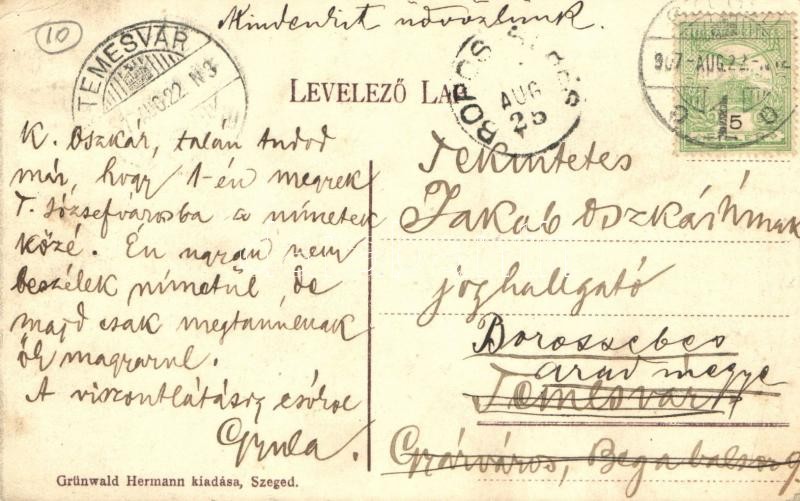 10
Mindenkit üdvözlünk.
TEMESVÁR
AUG. 22
907-AUG. 22
AUG 25
5
LEVELEZŐ LAP
K. Oszkár, talán tudod
már, hogy 1-én megyek
T. Józsefvárosba a németek
közé. Én ugyan nem
beszélek németül de
majd csak megtanulnak
ők magyarul.
A viszontlátásig csókol
Gyula.
Tekintetes
Jakab Oszkár Úrnak
joghallgató
Borossebes
Arad megye
Temesvár
Gyárváros, Bega balsor
Grünwald Hermann kiadása, Szeged.